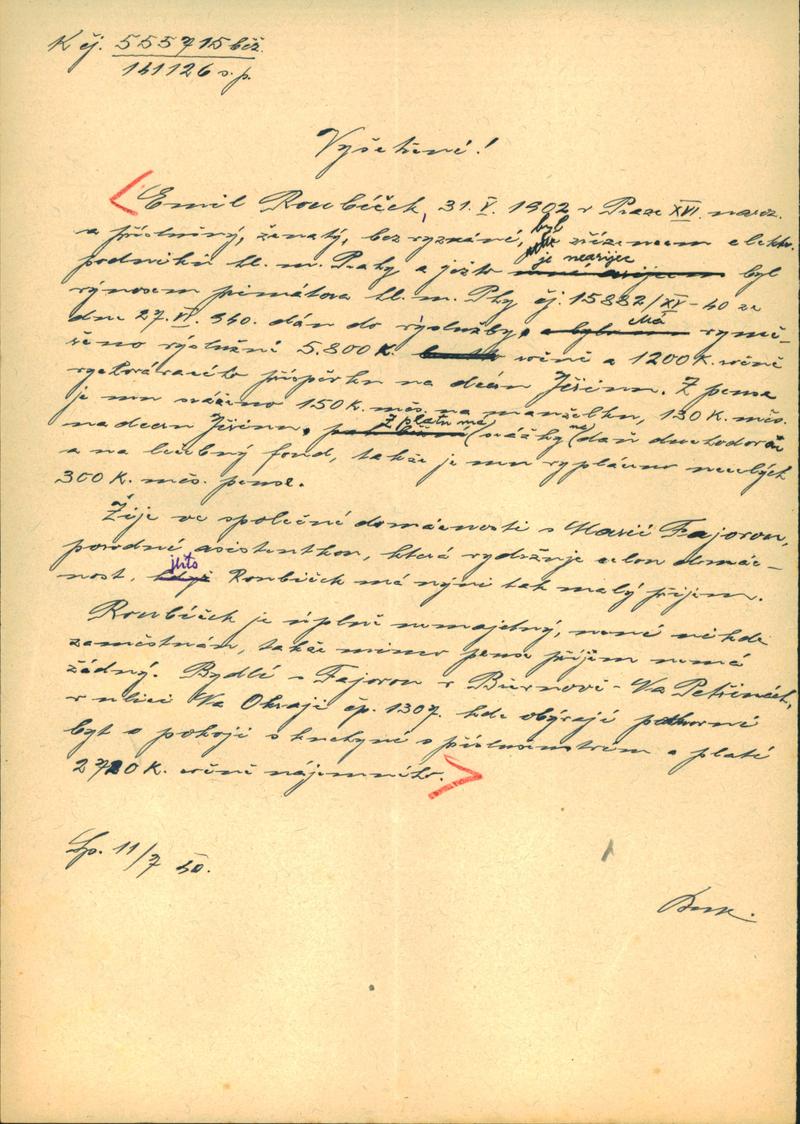 K čj. 555715 běž.
141126 s.p.
Vyšetření!
Emil Roubíček, 31. V. 1902 v Praze XVI. naroz.
a příslušný, ženatý, bez vyznání, byl zřízencem elektr.
podniků hl. m. Prahy a ježto je nearijec byl
výnosem primátora hl. m. Phy čj. 15882/XV-40 ze
dne 27. VI. 940. dán do výslužby. Má vymě-
řeno výslužné 5.800 K. ročně a 1200 K. ročně
vychovávacího příspěvku na dceru Jiřinu. Z pense
je mu sráženo 150 K. měs. na manželku, 130 K. měs.
na dceru Jiřinu, Z platu má (srážky na) daň důchodovou
a na léčebný fond, takže je mu vypláceno necelých
300 K. měs. pense.
Žije ve společné domácnosti s Marií Fajorou,
porodní asistentkou, která vydržuje celou domác-
nost, ježto Roubíček má nyní tak malý příjem.
Roubíček je úplně nemajetný, není nikde
zaměstnán, takže mimo pense příjem nemá
žádný. Bydlí s Fajorou v Břevnově - Na Petřinách,
v ulici Na Okraji čp. 1307. kde obývají podkrovní
byt o pokoji s kuchyní s příslušenstvím a platí
2720 K. ročně nájemného.
11/7 40.